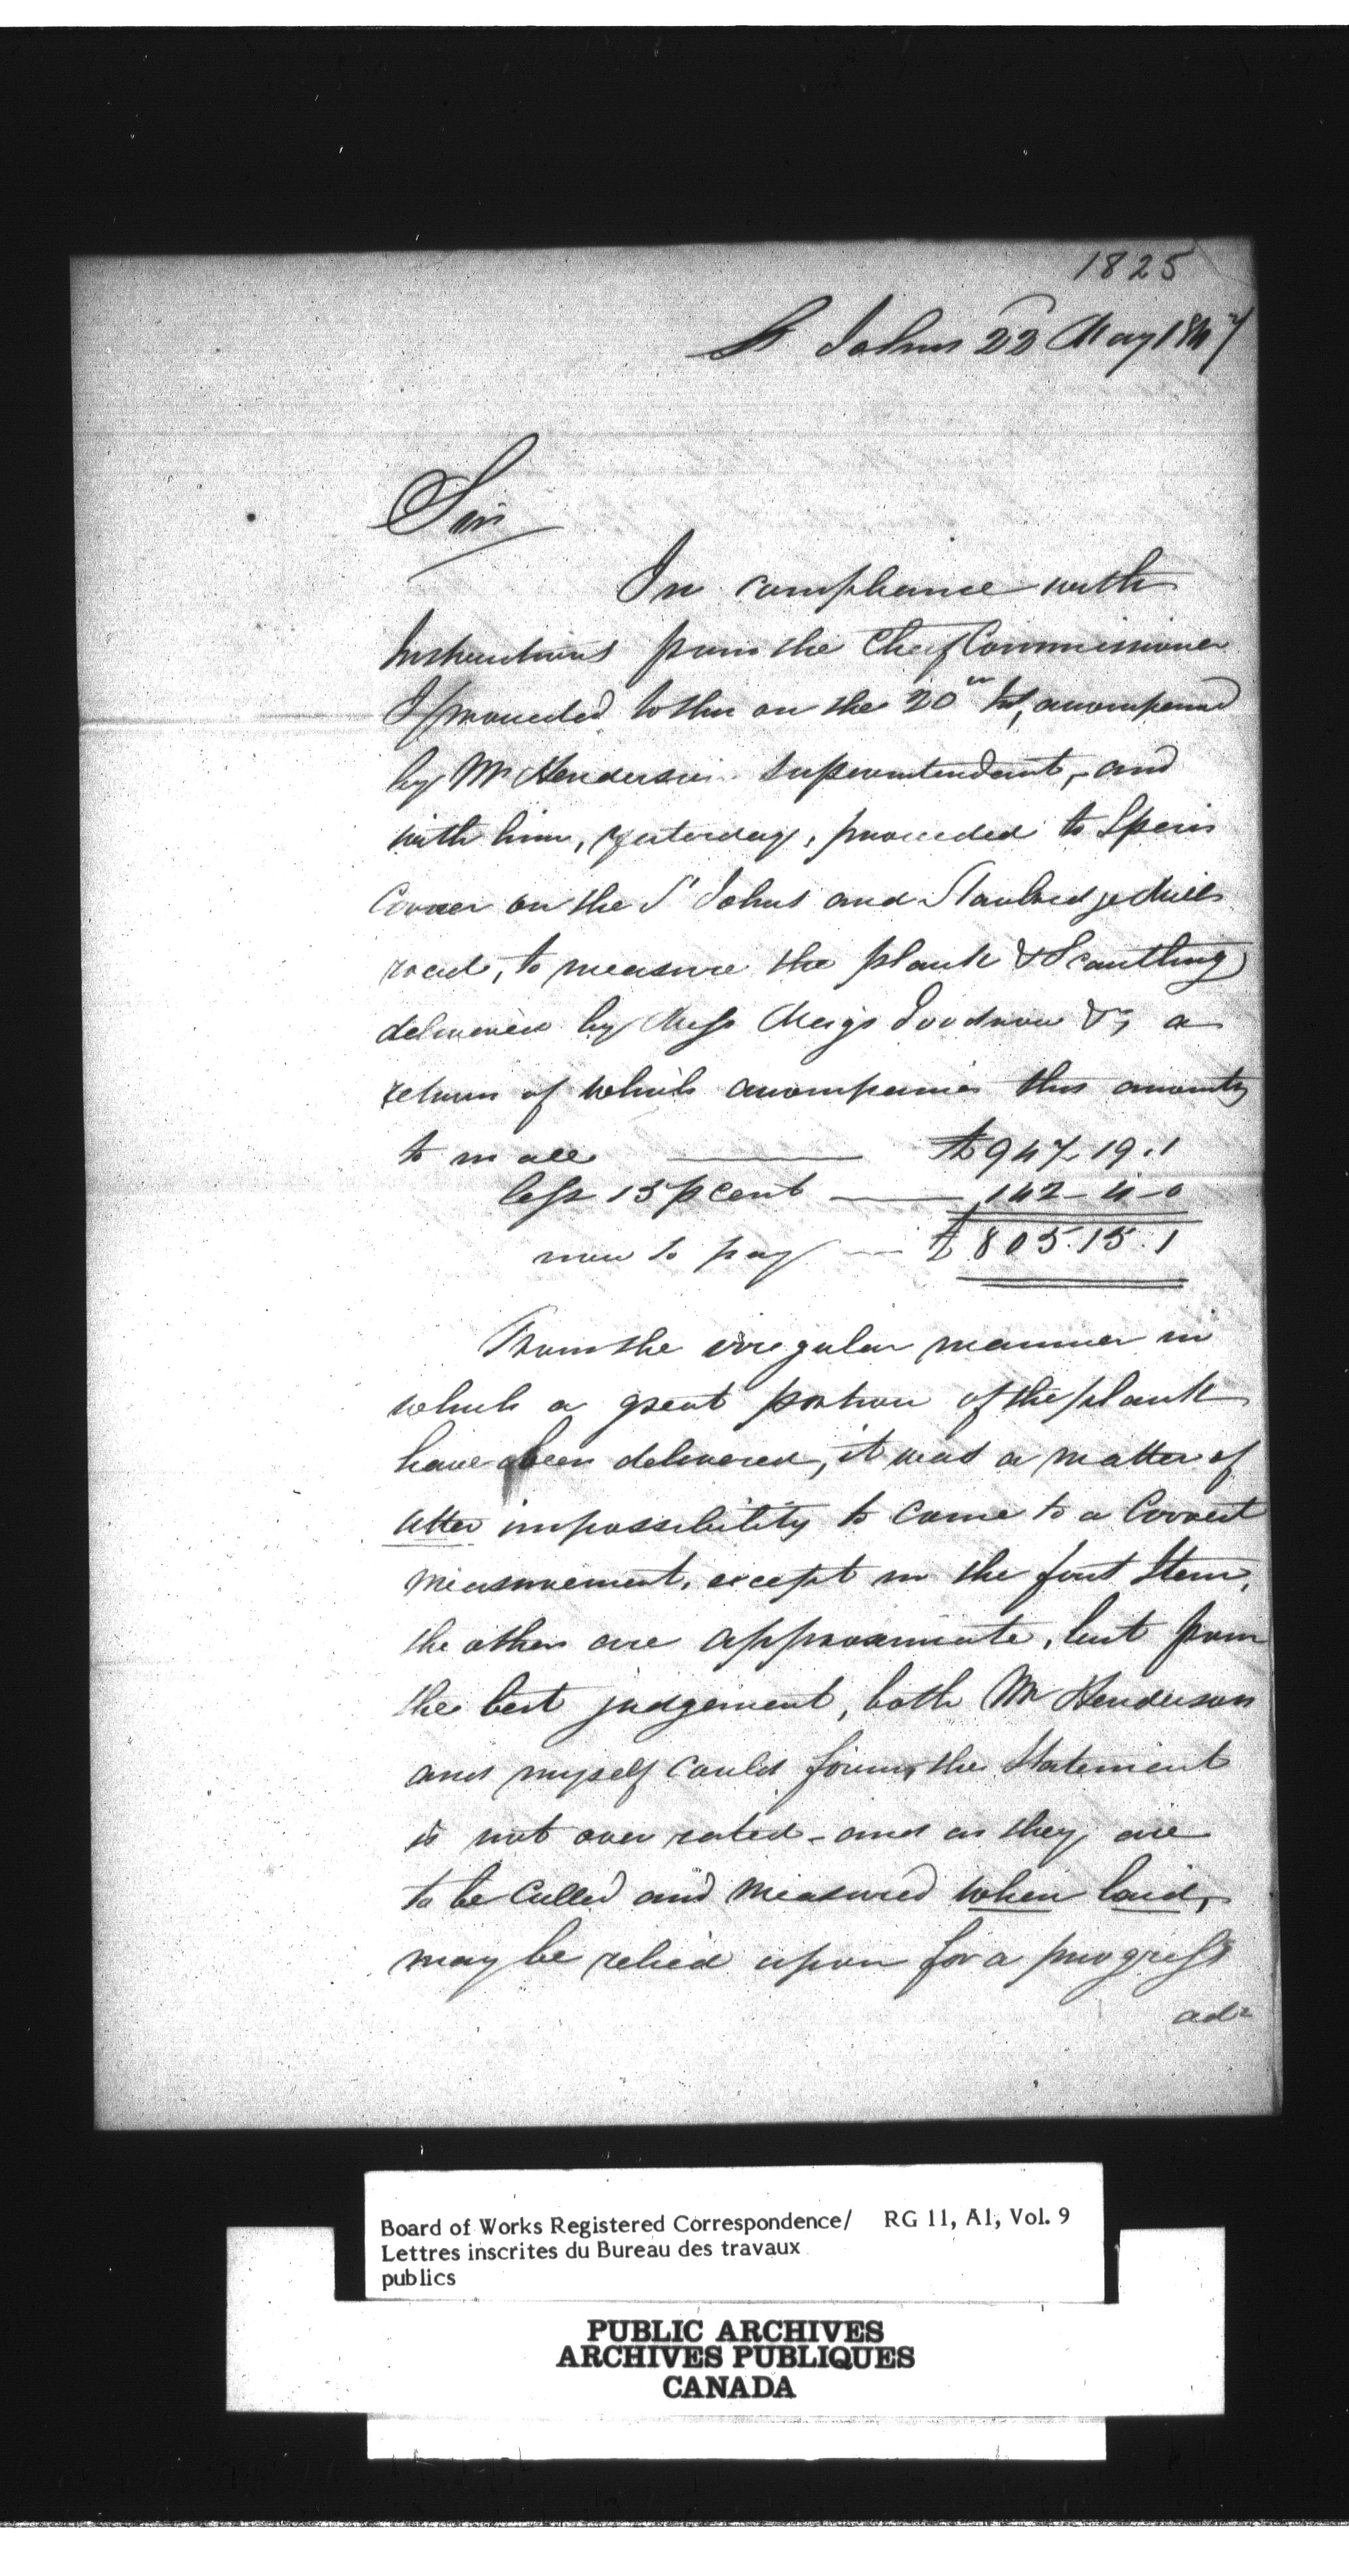 1825
St Johns 22 May 1847
Sir
In compliance with
Instructions from the Cheif Commissioner
I proceeded hither on the 20th Inst, accompanied
by Mr Henderson Superintendant, and
with him, yesterday, proceeded to Speirs
Corner on the St Johns and Stanbridge Mills
road, to measure the plank & Scantling
delivered by Messrs Meigs Goodnow &c, a
return of which accompanies this amounting
to in all £947.19.1
less 15 p cent 142-4-0
now to pay £805.15.1
From the irregular manner in
which a great portion of the plank
have been delivered, it was a matter of
utter impossibility to come to a Correct
measurement, except in the first Item,
the others are approximate, but from
the best judgement, both Mr Henderson
and myself could form, the Statement
is not over rated - and as they are
to be Culled and measured when laid,
may be relied upon for a progress
ad=
Board of Works Registered Correspondence/ RG 11, A1, Vol. 9
Lettres inscrites du Bureau des travaux
publics
PUBLIC ARCHIVES
ARCHIVES PUBLIQUES
CANADA